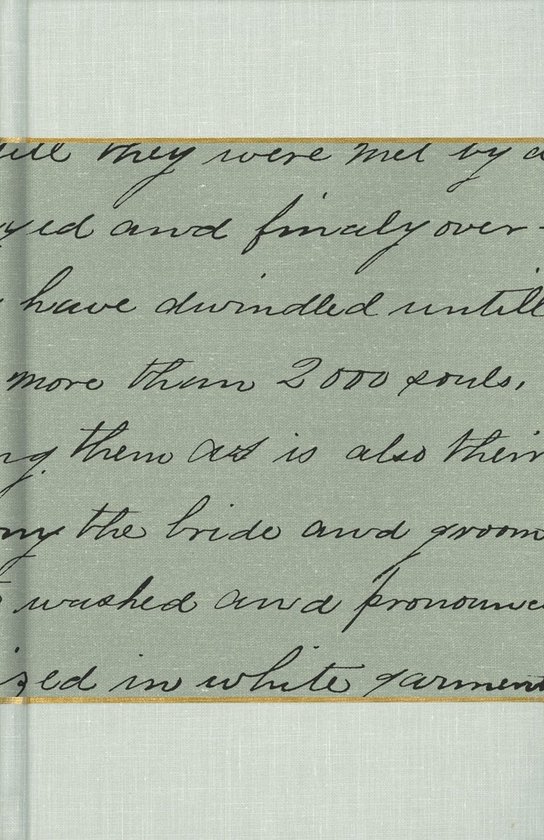 till they were met by a
yed and finaly over-
have dwindled untill
more than 2000 souls,
ng them as is also their
ny the bride and groom
washed and pronounce
ized in white garment